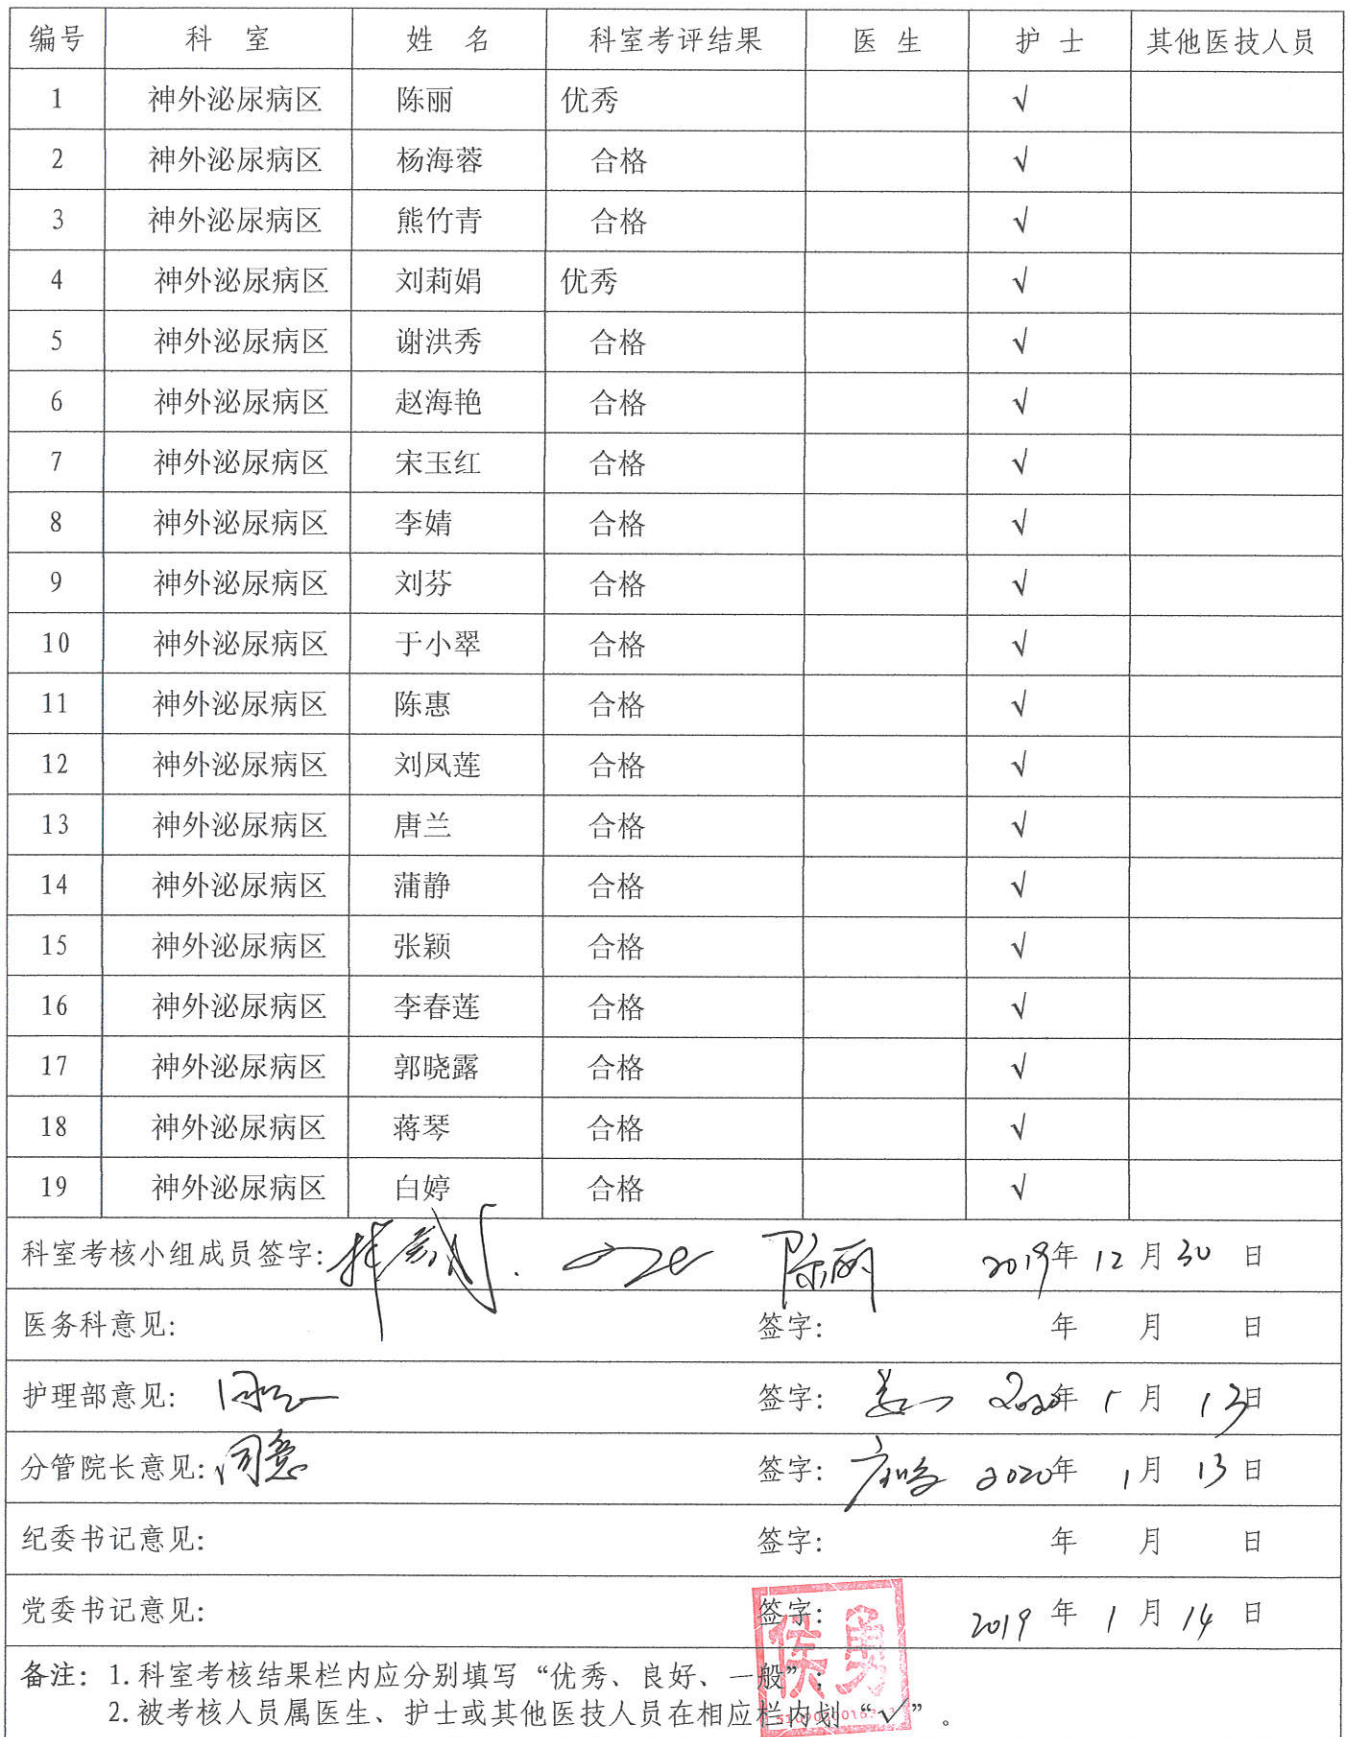 编号 科 室 姓 名 科室考评结果 医 生 护 士 其他医技人员
1 神外泌尿病区 陈丽 优秀 √
2 神外泌尿病区 杨海蓉 合格 √
3 神外泌尿病区 熊竹青 合格 √
4 神外泌尿病区 刘莉娟 优秀 √
5 神外泌尿病区 谢洪秀 合格 √
6 神外泌尿病区 赵海艳 合格 √
7 神外泌尿病区 宋玉红 合格 √
8 神外泌尿病区 李婧 合格 √
9 神外泌尿病区 刘芬 合格 √
10 神外泌尿病区 于小翠 合格 √
11 神外泌尿病区 陈惠 合格 √
12 神外泌尿病区 刘凤莲 合格 √
13 神外泌尿病区 唐兰 合格 √
14 神外泌尿病区 蒲静 合格 √
15 神外泌尿病区 张颖 合格 √
16 神外泌尿病区 李春莲 合格 √
17 神外泌尿病区 郭晓露 合格 √
18 神外泌尿病区 蒋琴 合格 √
19 神外泌尿病区 白婷 合格 √
科室考核小组成员签字: 陈丽 2019年 12 月 30 日
医务科意见: 签字: 年 月 日
护理部意见: 同意 签字: 2020年 1 月 13日
分管院长意见: 同意 签字: 2020年 1月 13 日
纪委书记意见: 签字: 年 月 日
党委书记意见: 签字: 2019 年 1 月 14 日
侯勇
备注: 1.科室考核结果栏内应分别填写“优秀、良好、一般”;
2.被考核人员属医生、护士或其他医技人员在相应栏内划“√”。